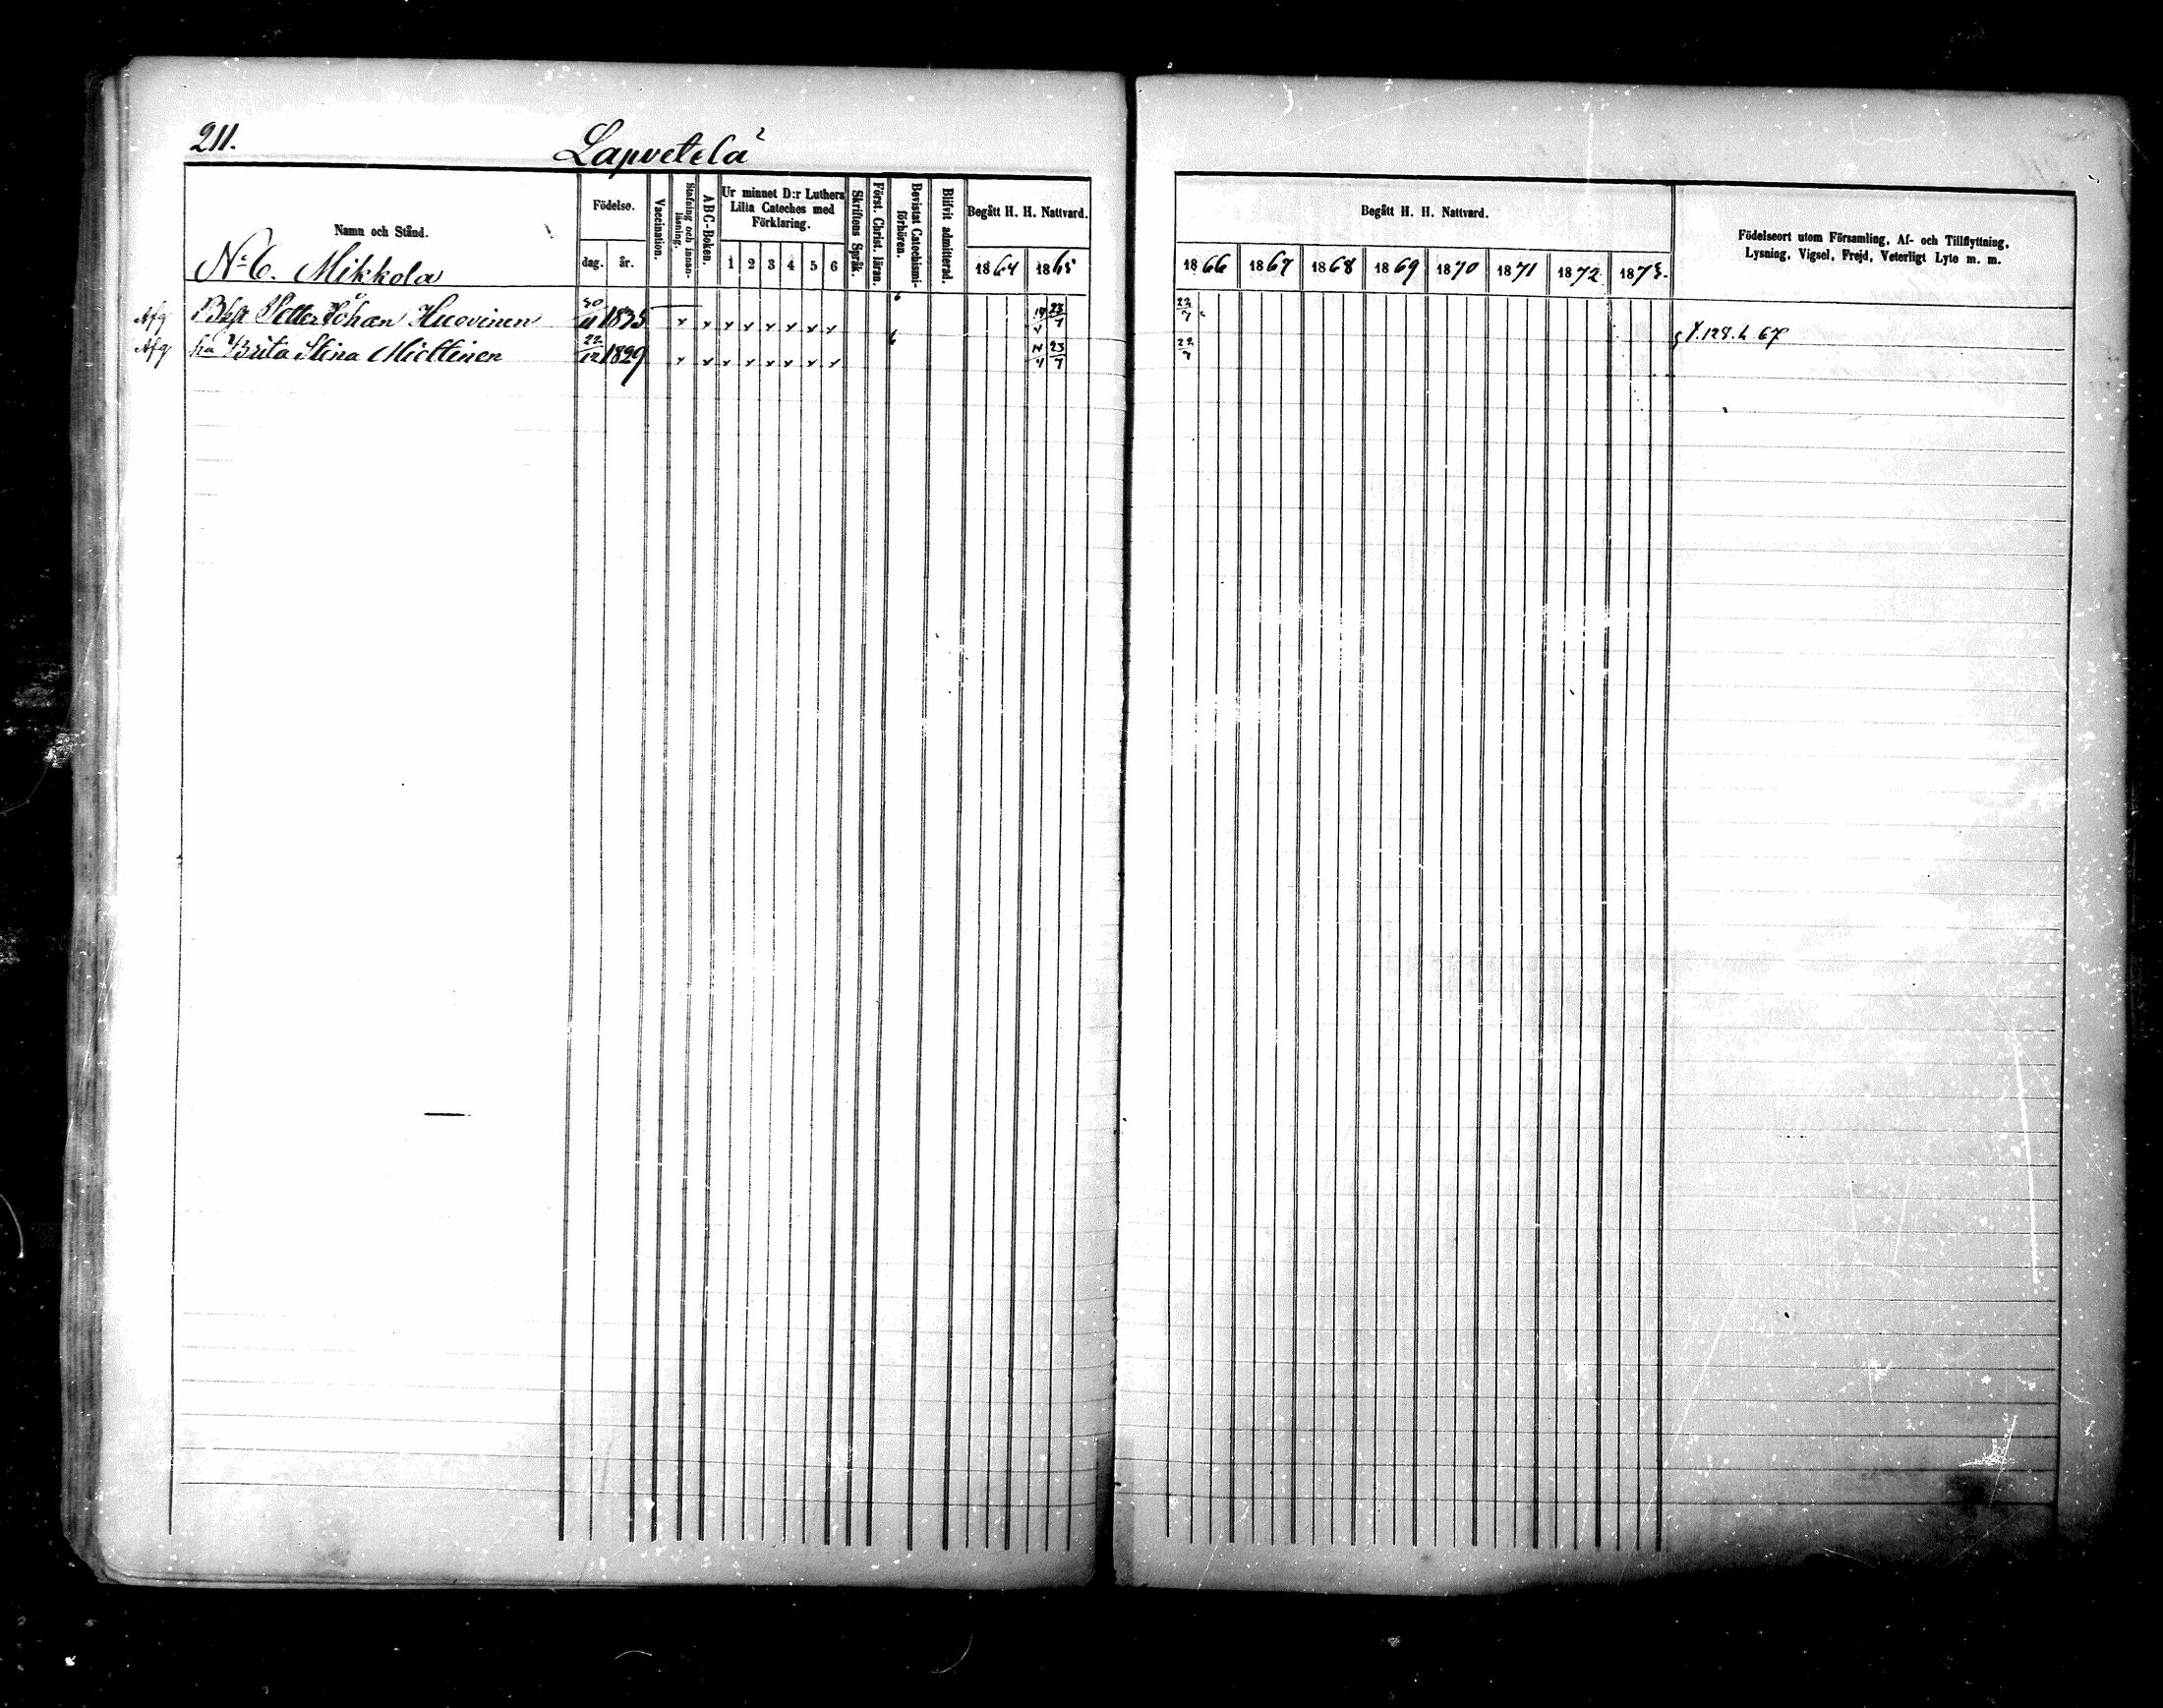 211.
Lapvetelä
Namn och Stånd.
Födelse.
dag. år.
Vaccination.
Stafning och innan-läsning.
ABC-Boken.
Ur minnet D:r Luthers
Lilla Cateches med
Förklaring.
1 2 3 4 5 6
Skriftens Språk.
Först. Christ. läran.
Bevistat Catechismi-förhören.
Blifvit admitterad.
Begått H. H. Nattvard.
1864 1865
Begått H. H. Nattvard.
1866 1867 1868 1869 1870 1871 1872 1873.
Födelseort utom Församling, Af- och Tillflyttning,
Lysning, Vigsel, Frejd, Veterligt Lyte m. m.
No 6. Mikkola
Afg Petter Johan Huovinen 30/11 1835 23/7 22/7
Afg Brita Stina Miettinen 22/12 1829 23/7 22/7
128. 67